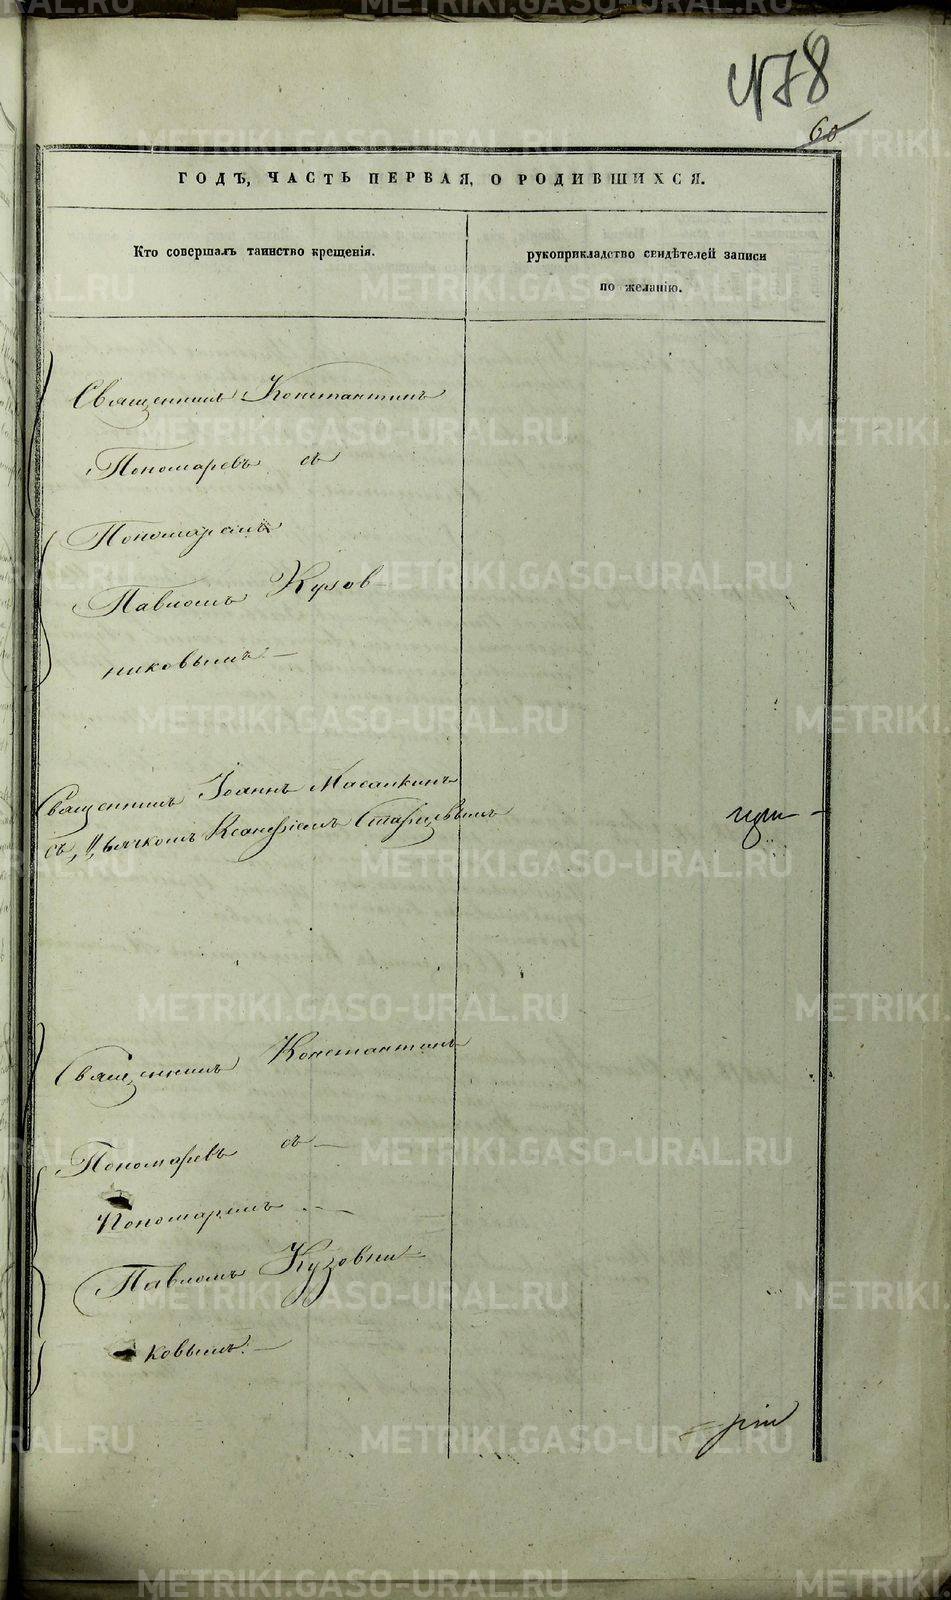 478
60
ГОДЪ, ЧАСТЬ ПЕРВАЯ, О РОДИВШИХСЯ.
Кто совершалъ таинство крещенія.
рукоприкладство свидѣтелей записи
по желанію.
Священникъ Константинъ
Пономаревъ съ
Пономаремъ
Павломъ Кузов
никовымъ. —
Священникъ Іоаннъ Масалкинъ
съ Дьячкомъ Старцевымъ
Священникъ Константинъ
Пономаревъ съ —
Пономаремъ
Павломъ Кузовни
ковымъ. —
METRIKI.GASO-URAL.RU